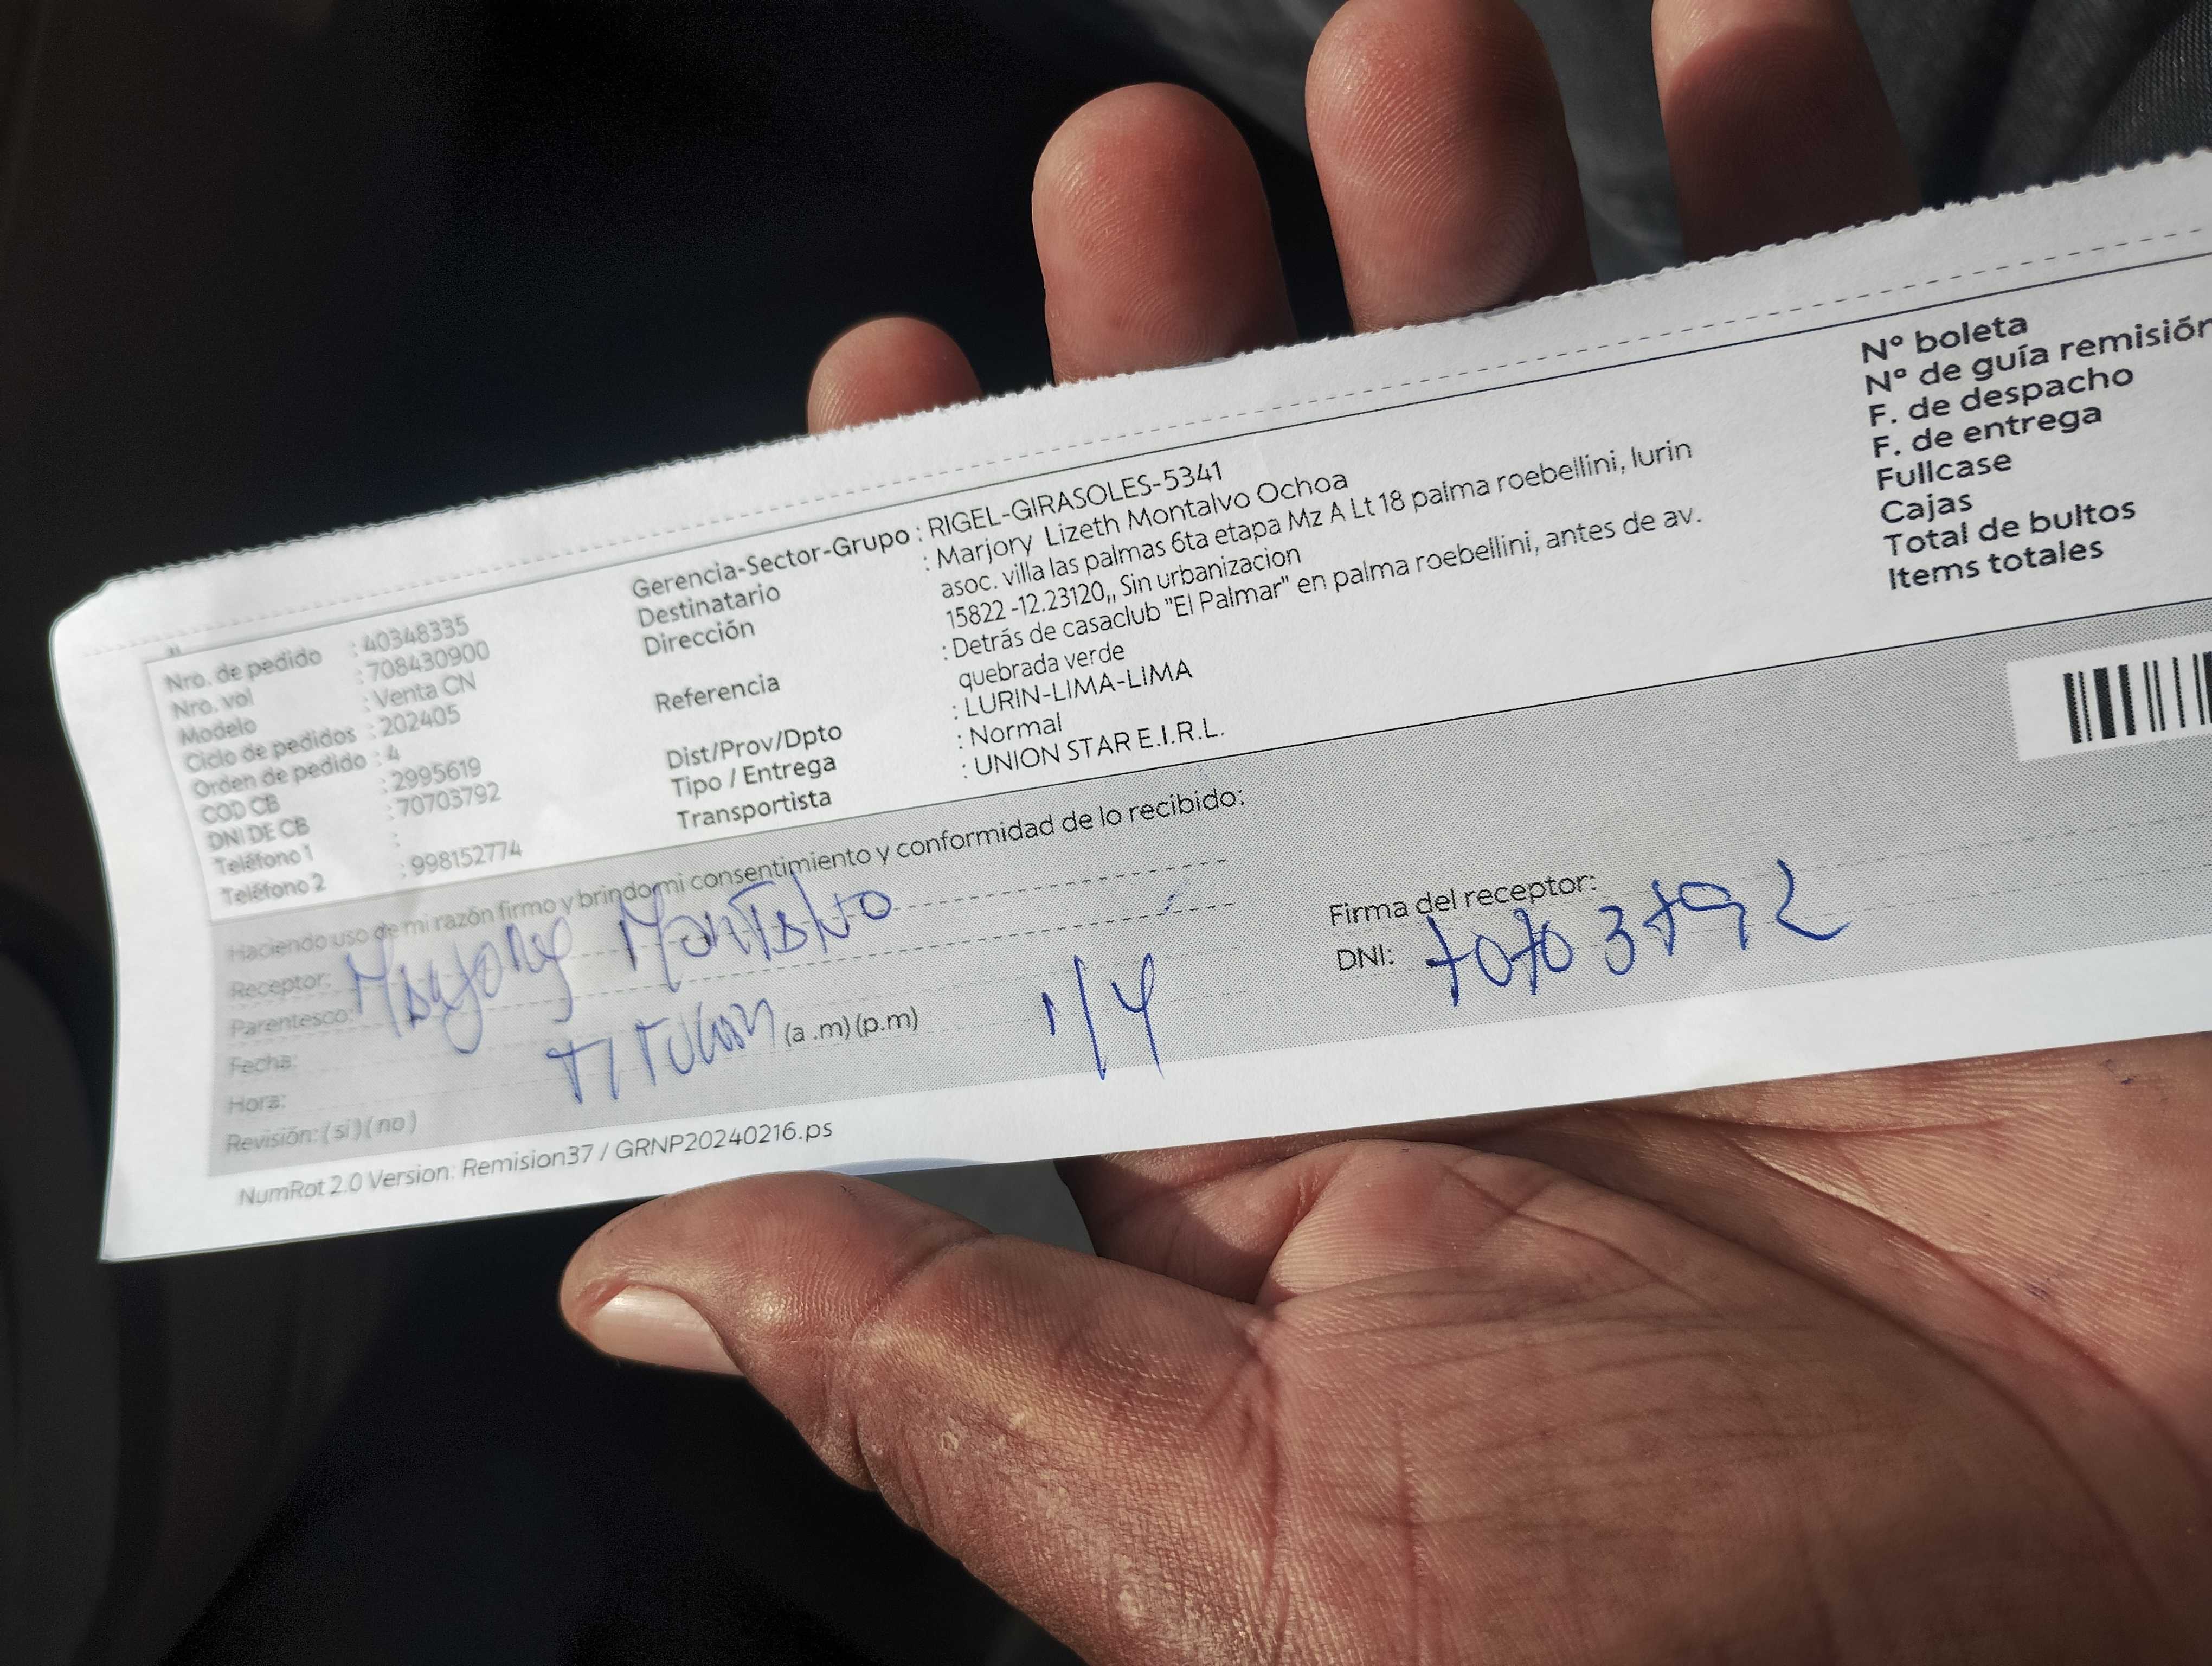 Nro. de pedido : 40348335
Nro. vol : 708430900
Modelo : Venta CN
Ciclo de pedidos : 202405
Orden de pedido : 4
COD CB : 2995619
DNI DE CB : 70703792
Teléfono 1 :
Teléfono 2 : 998152774
Gerencia-Sector-Grupo : RIGEL-GIRASOLES-5341
Destinatario : Marjory Lizeth Montalvo Ochoa
Dirección asoc. villa las palmas 6ta etapa Mz A Lt 18 palma roebellini, lurin
15822 -12.23120,, Sin urbanizacion
Referencia : Detrás de casaclub "El Palmar" en palma roebellini, antes de av.
quebrada verde
Dist/Prov/Dpto : LURIN-LIMA-LIMA
Tipo / Entrega : Normal
Transportista : UNION STAR E.I.R.L.
N° boleta
N° de guía remisión
F. de despacho
F. de entrega
Fullcase
Cajas
Total de bultos
Items totales
Haciendo uso de mi razón firmo y brindo mi consentimiento y conformidad de lo recibido:
Receptor: Marjory Montalvo
Parentesco:
Fecha:
Hora: (a .m) (p.m)
Revisión: ( si ) ( no )
1/4
Firma del receptor:
DNI: 70703792
NumRot 2.0 Version: Remision37 / GRNP20240216.ps